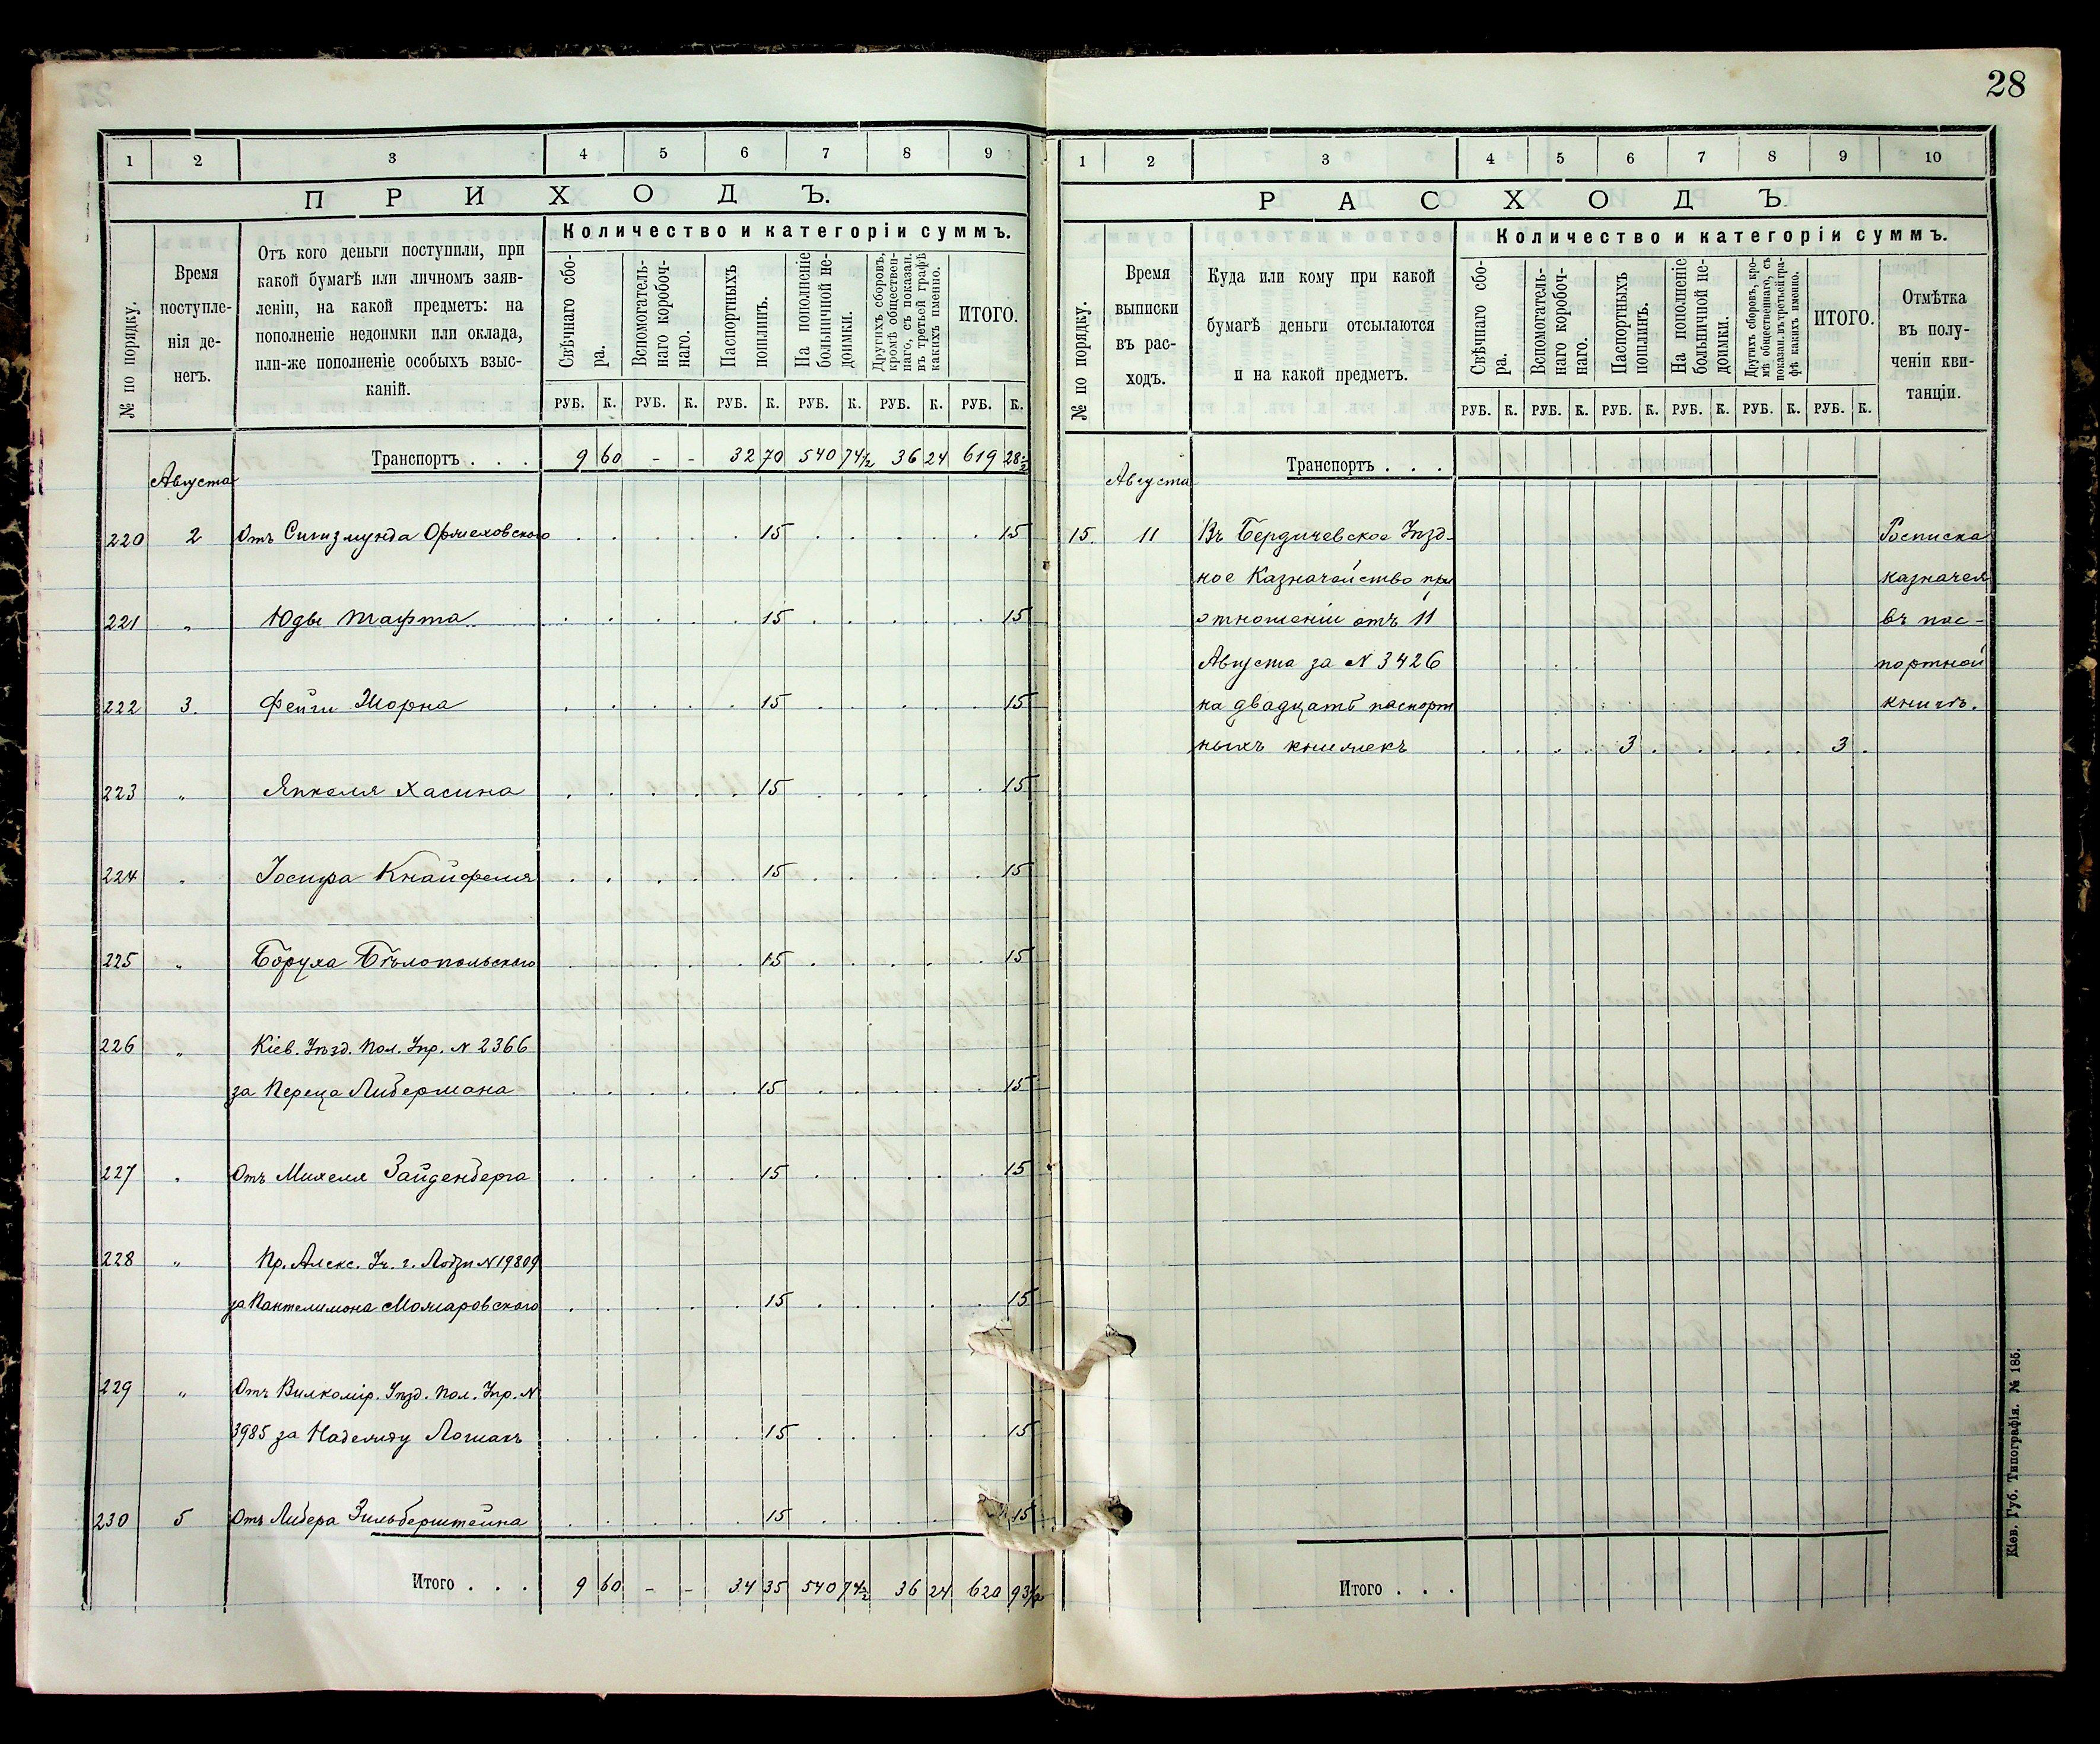 28
1 2 3 4 5 6 7 8 9
ПРИХОДЪ.
№ по порядку.
Время
поступле-
нія де-
негъ.
Отъ кого деньги поступили, при
какой бумагѣ или личномъ заяв-
леніи, на какой предметъ: на
пополненіе недоимки или оклада,
или-же пополненіе особыхъ взыс-
каній.
Количество и категоріи суммъ.
Свѣчнаго сбо-
ра.
Вспомогатель-
наго коробоч-
наго.
Паспортныхъ
пошлинъ.
На пополненіе
больничной не-
доимки.
Другихъ сборовъ,
кромѣ обществен-
наго, съ показан.
въ третьей графѣ
какихъ именно.
ИТОГО.
РУБ. К. РУБ. К. РУБ. К. РУБ. К. РУБ. К. РУБ. К.
Транспортъ . . . 9 60 - - 32 70 540 74½ 36 24 619 28½
Августа
220 2 Отъ Сигизмунда Оржеховского 15 15
221 " Юды Тафта 15 15
222 3. Фейги Шорна 15 15
223 " Янкеля Хасина 15 15
224 " Іосифа Кнайфеля 15 15
225 " Боруха Бѣлопольского 15 15
226 " Кіев. Уѣзд. Пол. Упр. N 2366
за Переца Либермана 15 15
227 " Отъ Михеля Зайденберга 15 15
228 " Пр. Алекс. Уч. г. Лодзи N 19809
за ПантелимонаМожаровского 15 15
229 " Отъ Вилкомір. Уѣзд. Пол. Упр. N
3985 за Лошакъ 15 15
230 5 Отъ Либера Зильберштейна 15 15
Итого . . . 9 60 - - 34 35 540 74½ 36 24 620 93½
1 2 3 4 5 6 7 8 9 10
РАСХОДЪ.
№ по порядку.
Время
выписки
въ рас-
ходъ.
Куда или кому при какой
бумагѣ деньги отсылаются
и на какой предметъ.
Количество и категоріи суммъ.
Свѣчнаго сбо-
ра.
Вспомогатель-
наго коробоч-
наго.
Паспортныхъ
пошлинъ.
На пополненіе
больничной не-
доимки.
Другихъ сборовъ, кро-
мѣ общественнаго, съ
показан. въ третьей гра-
фѣ какихъ именно.
ИТОГО.
Отмѣтка
въ полу-
ченіи кви-
танціи.
РУБ. К. РУБ. К. РУБ. К. РУБ. К. РУБ. К. РУБ. К.
Транспортъ . . .
Августа
15. 11 Въ Бердичевское Уѣзд- Росписка
ное Казначейство при казначея
отношеніи отъ 11 въ пас-
Августа за N 3426 портной
на двадцать паспорт книгѣ.
ныхъ книжекъ 3 3
Итого . . .
Кіев. Губ. Типографія. № 185.